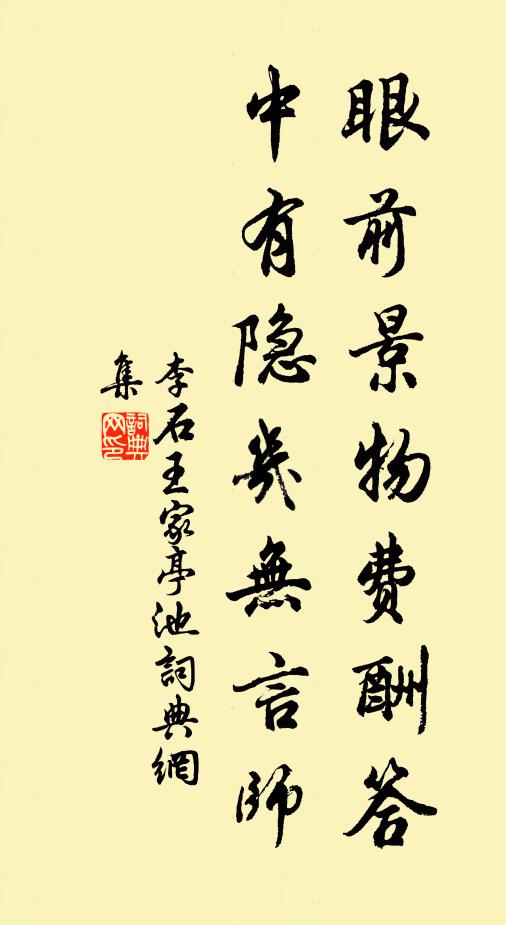 眼前景物費酬答
中有隐幾無言師
李石王家亭池詞典網
集
詞典網印